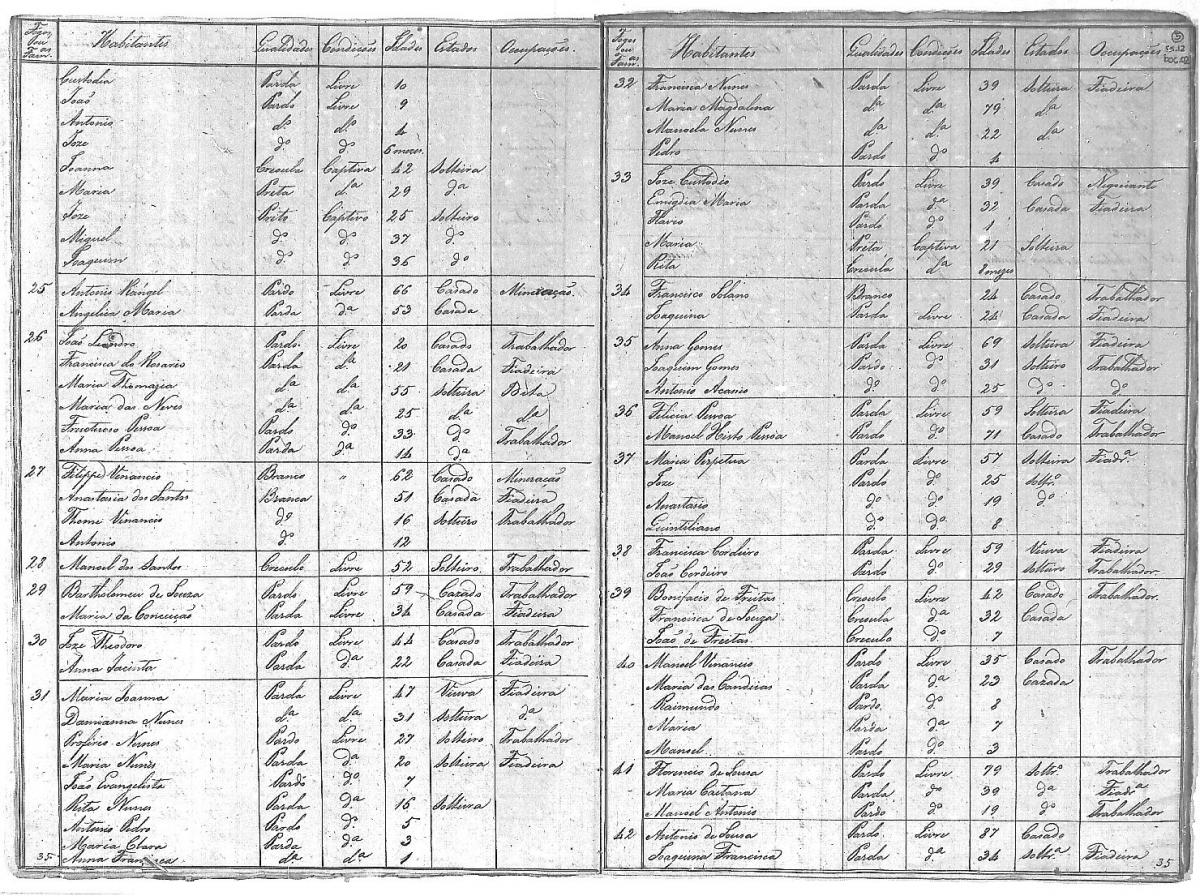 Fogos ou Fam.as Habitantes Qualidades Condições Idades Estados Occupações.
Custodia Parda Livre 10
João Pardo Livre 9
Antonio d.º d.º 4
Joze d.º d.º 6 mezes
Joanna Creoula Captiva 42 Solteira
Maria Preta d.a 29 d.a
Joze Preto Captivo 25 Solteiro
Miguel d.º d.º 37 d.º
Joaquim d.º d.º 36 d.º
25 Antonio Rangel Pardo Livre 66 Casado Mineração
Angelica Maria Parda d.a 53 Casada
26 João Leandro Pardo Livre 20 Casado Trabalhador
Francisca do Rosario Parda d.a 21 Casada Fiadeira
Maria Thomazia d.a d.a 55 Solteira Dita
Maria das Neves d.a d.a 25 d.a d.a
Fructuroso Pessoa Pardo d.º 33 d.º Trabalhador
Anna Pessoa Parda d.a 14 d.a
27 Filippe Venancio Branco " 62 Casado Mineracão
Anastasia dos Santos Branca 51 Casada Fiadeira
Thome Venancio d.º 16 Solteiro Trabalhador
Antonio d.º 12
28 Manoel dos Santos Creoulo Livre 52 Solteiro Trabalhador
29 Bartholomeu de Souza Pardo Livre 59 Cazado Trabalhador
Maria da Conceição Parda Livre 34 Casada Fiadeira
30 Joze Theodoro Pardo Livre 44 Casado Trabalhador
Anna Jacinta Parda d.a 22 Casada Fiadeira
31 Maria Joanna Parda Livre 47 Viuva Fiadeira
Damianna Nunes d.a d.a 31 Solteira d.a
Profirio Nunes Pardo Livre 27 Solteiro Trabalhador
Maria Nunes Parda d.a 20 Solteira Fiadeira
João Evangelista Pardo d.º 7
Rita Nunes Parda d.a 16 Solteira
Antonio Pedro Pardo d.º 5
Maria Clara Parda d.a 3
Anna Francisca d.a d.a 1
35
Fogos ou Fam.as Habitantes Qualidades Condições Idades Estados Occupações
5
doc.12
32 Francisca Nunes Parda Livre 39 Solteira Fiadeira
Maria Magdalena d.a d.a 79 d.a
Manoela Nunes d.a d.a 22 d.a
Pedro Pardo d.º 4
33 Joze Custodio Pardo Livre 39 Casado Negociante
Emigdia Maria Parda d.a 32 Casada Fiadeira
Flavio Pardo d.º 1
Maria Preta Captiva 21 Solteira
Rita Creoula d.a 8 mezes
34 Francisco Solano Branco 24 Casado Trabalhador
Joaquina Parda Livre 24 Casada Fiadeira
35 Anna Gomes Parda Livre 69 Solteira Fiadeira
Joaquim Gomes Pardo d.º 31 Solteiro Trabalhador
Antonio Acacio d.º d.º 25 d.º d.º
36 Felicia Pessoa Parda Livre 59 Solteira Fiadeira
Manoel Pessoa Pardo d.º 71 Casado Trabalhador
37 Maria Perpetua Parda Livre 57 Solteira Fiadr.a
Joze Pardo d.º 25 Soltr.º
Anastasio d.º d.º 19 d.º
Quintiliano d.º d.º 8
38 Francisca Cordeiro Parda Livre 59 Viuva Fiadeira
João Cordeiro Pardo d.º 29 Solteiro Trabalhador
39 Bonifacio de Freitas Creoulo Livre 42 Casado Trabalhador
Francisca de Souza Creoula d.a 32 Casada
João de Freitas Creoulo d.º 7
40 Manoel Venancio Pardo Livre 35 Casado Trabalhador
Maria das Candeias Parda d.a 23 Cazada
Raimundo Pardo d.º 8
Maria Parda d.a 7
Manoel Pardo d.º 3
41 Florencio de Sousa Pardo Livre 79 Soltr.º Trabalhador
Maria Caetana Parda d.º 39 d.a Fiadr.a
Manoel Antonio Pardo d.º 19 d.º Trabalhador
42 Antonio de Sousa Pardo Livre 87 Casado
Joaquina Francisca Parda d.a 34 Soltr.a Fiadeira
35